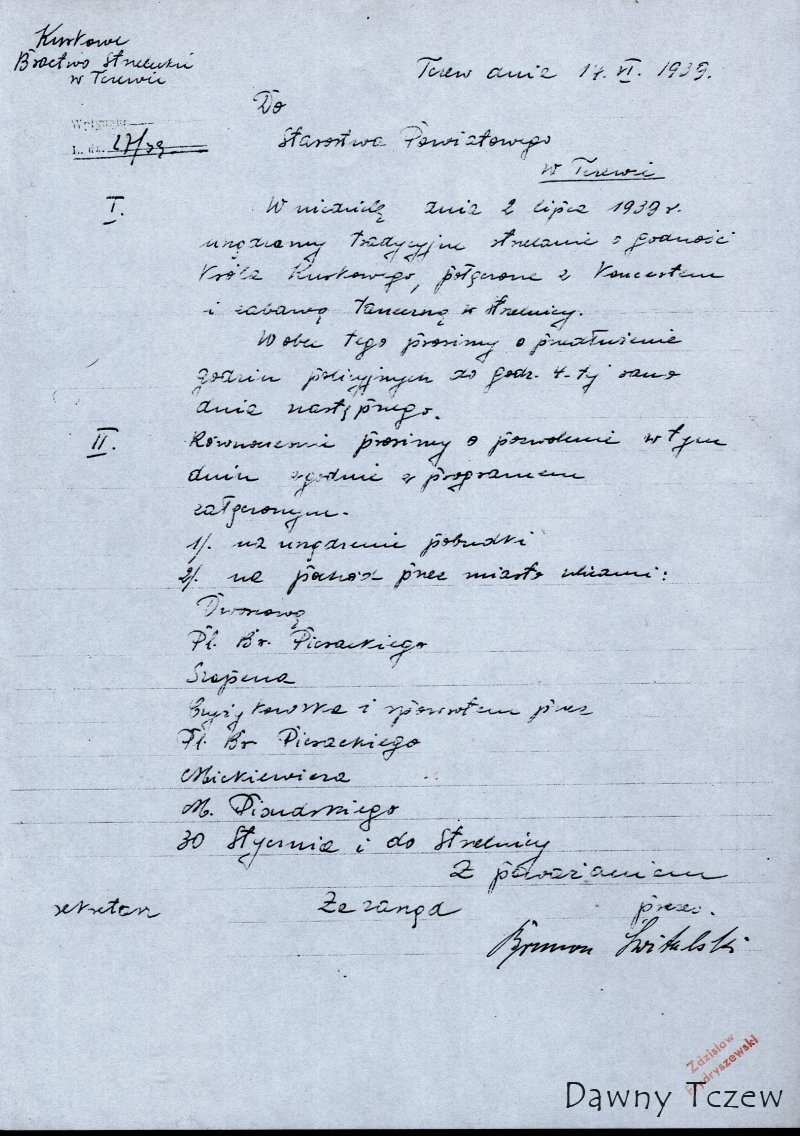 Kurkowe
Bractwo Strzeleckie
w Tczewie
Tczew dnia 17. VI. 1939.
L. dz. 27/39
Do
Starostwa Powiatowego
w Tczewie
I. W niedzielę dnia 2 lipca 1939 r.
urządzamy tradycyjne strzelanie o godność
Króla Kurkowego, połączone z koncertem
i zabawą taneczną w strzelnicy.
Wobec tego prosimy o przedłużenie
godzin policyjnych do godz. 4-tej rano
dnia następnego.
II. Równocześnie prosimy o pozwolenie w tym
dniu zgodnie z programem
załączonym.
1/. na urządzenie pobudki
2/. na pochód przez miasto ulicami:
Dworcową
Pl. Br. Pierackiego
Szopena
Czyżykowska i spowrotem przez
Pl. Br. Pierackiego
Mickiewicza
M. Piłsudskiego
30 Stycznia i do Strzelnicy
Z poważaniem
sekretarz Za zarząd prezes.
Brunon Świtalski
Zdzisław
Dawny Tczew